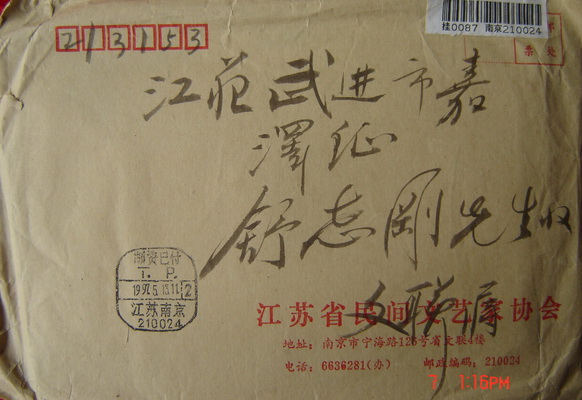 213153
挂0087 南京210024
江苏武进市嘉
泽镇
舒志刚先生收
文联寄
邮资已付
T. P.
1997.5.13.11
2
江苏南京
210024
江苏省民间文艺家协会
地址:南京市宁海路126号省文联4楼
电话:6636281(办) 邮政编码:210024
1:15PM